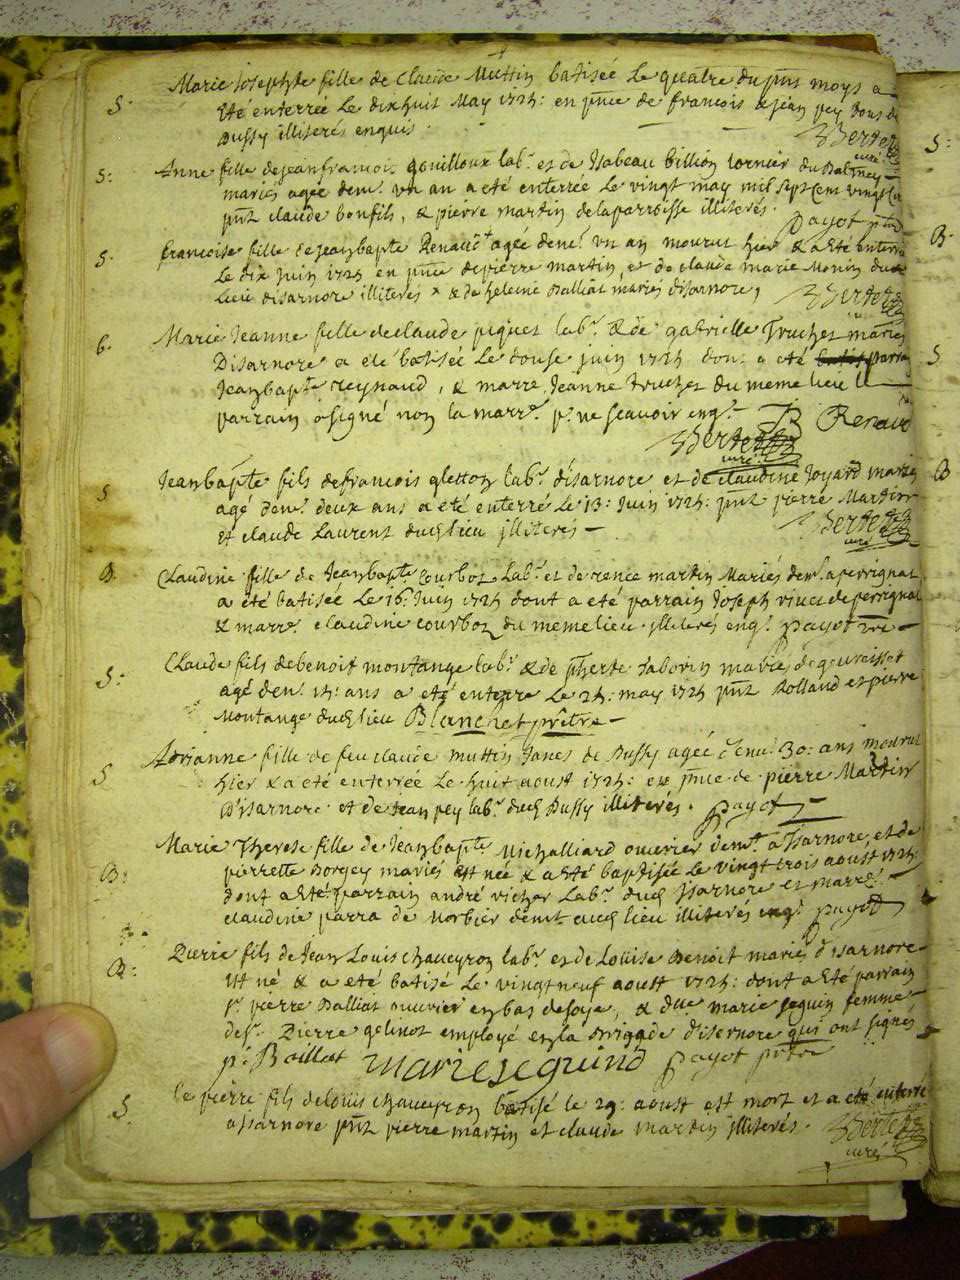 S. Marie Josephte fille de Claude Muttin batisée Le quatre du pnt moys a
été enterrée Le dix huit May 1725: en pnce de francois & jean pey tous de
Dussy illiterés enquis. Berte
curé
S: Anne fille de jean francois Gouilloux labr. et de Isabeau billion tornier du
mariés agée denv. un an a eté enterrée Le vingt may mil sept cent vingt
pnt claude bonfils, & pierre martin de la parroisse illiterés. Payot ptre
S. francoise fille de jean bapte Renaud agée denv. un an mourut hier & a eté enterrée
Le dix juin 1725 en pnce de pierre martin, et de claude marie Monin du
Lieu disarnore illiterés x & de heleine Balliat mariés disarnore,
6. Marie Jeanne fille de claude piquet labr. & de gabrielle Truchet mariés
Disarnore a eté batisée Le douse juin 1725 dont a eté parrain
Jean bapte reynaud, & marre Jeanne Truchet du meme lieu
parrain a signé non la marre. pr. ne scavoir enq. JB Renaud
curé
S Jean bapte fils de francois gletton labr. disarnore et de claudine Joyard mariés
agé denv. deux ans a eté enterré Le 13: Juin 1725: pnt pierre Martin
et claude Laurent dud lieu illiterés –
curé
B. Claudine fille de Jean bapte courboz labr. et de rence martin Mariés dem. a perrignat
a été batisée Le 16. Juin 1725 dont a eté parrain Joseph vivet de perrignat
& marre. claudine courboz du meme lieu. illiterés enq. payot vre –
S: Claude fils de benoit montange labr. & de pherte Taborin mariés de geuraisset
agé denv. 15: ans a eté enterre Le 25: may 1725 pnt Rolland et pierre
Montange dud lieu Blanchet prêtre –
S Adrianne fille de feu claude muttin Janes de Dussy agée denv. 30: ans mourut
hier & a eté enterrée Le huit aoust 1725: en pnce de pierre Martin
Disarnore et de Jean pey labr. dud Dussy illiterés. Payot –
B: Marie Therese fille de Jean bapte Michalliard ouvrier demt. a Isarnore, et de
pierrette Borgey mariés est née & a eté baptisée Le vingt trois aoust 1725:
dont a eté parrain andré vicher Labr. dud Isarnore et marre. –
claudine parra de Norbier demt. aud lieu illiterés enq. payot
B: Pierre fils de Jean Louis chaveyron labr. et de Louise Benoit mariés disarnore
est né & a eté batisé Le vingt neuf aoust 1725: dont a eté parrain
sr. pierre Balliat ouvrier en bas de soye, & dlle marie seguin femme
de sr. Pierre gelinot employé en la brigade disernore qui ont signés
p. Baillat marie seguind payot ptre
S Le pierre fils de louis chaveyron batisé le 29: aoust est mort et a eté enterré
a Isarnore pnt pierre martin et claude martin illiterés.
curé